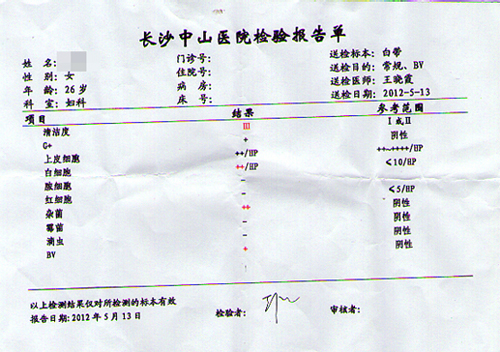 长沙中山医院检验报告单
姓 名: 门诊号: 送检标本: 白带
性 别: 女 住院号: 送检目的: 常规、BV
年 龄: 26岁 病 房: 送检医师: 王晓霞
科 室: 妇科 床 号: 送检日期: 2012-5-13
项目 结果 参考范围
清洁度 III I 或 II
G+ + 阴性
上皮细胞 ++/HP ++~++++/HP
白细胞 ++/HP ≤10/HP
脓细胞 -
红细胞 - ≤5/HP
杂菌 ++ 阴性
霉菌 - 阴性
滴虫 - 阴性
BV + 阴性
以上检测结果仅对所检测的标本有效
报告日期: 2012 年 5 月 13 日 检验者: 审核者: